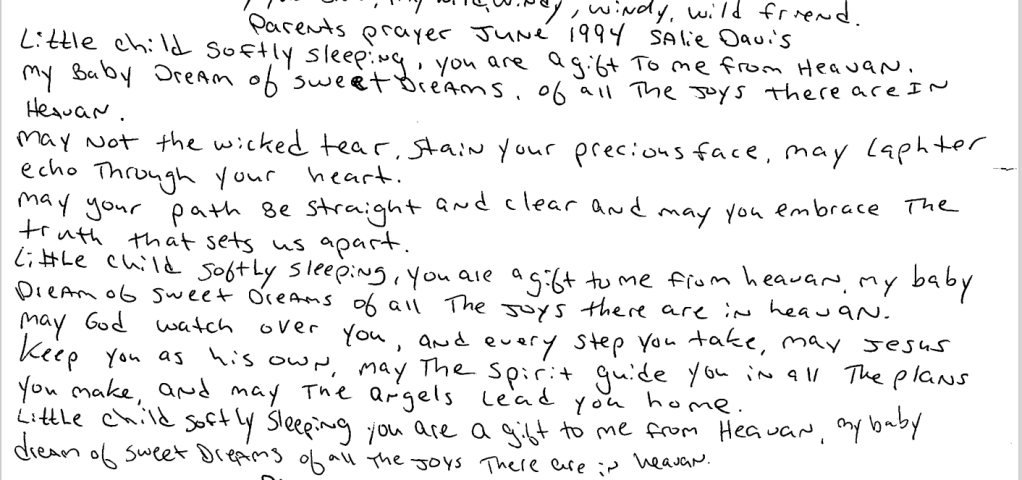 wild, windy, windy, wild friend.
Parents prayer JUNE 1994 SAlie Davis
Little child softly sleeping, you are a gift To me from Heavan.
my Baby Dream of sweet Dreams. of all The Joys there are IN
Heavan.
may Not the wicked tear, stain your precious face, may Laphter
echo Through your heart.
may your path Be straight and clear and may you embrace The
truth that sets us apart.
Little child softly sleeping, you are a gift to me from heavan, my baby
Dream of sweet Dreams of all The Joys there are in heavan.
may God watch over you, and every step you take, may Jesus
Keep you as his own, may The Spirit guide you in all The plans
you make, and may The angels Lead you home.
Little child softly Sleeping you are a gift to me from Heavan, my baby
dream of sweet Dreams of all The Joys There are in heavan.